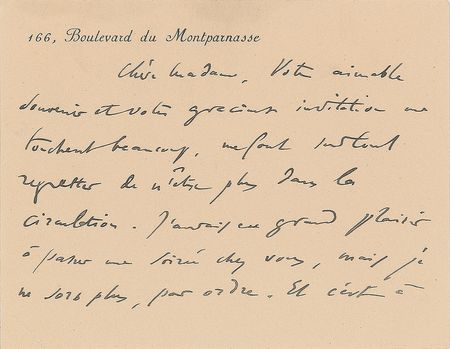 166, Boulevard du Montparnasse
Chère Madame, Votre aimable
souvenir et votre gracieuse invitation me
touchent beaucoup, me font surtout
regretter de n'être plus dans la
circulation. J'aurais eu grand plaisir
à passer une soirée chez vous, mais je
ne sors plus, par ordre. Et c'est à